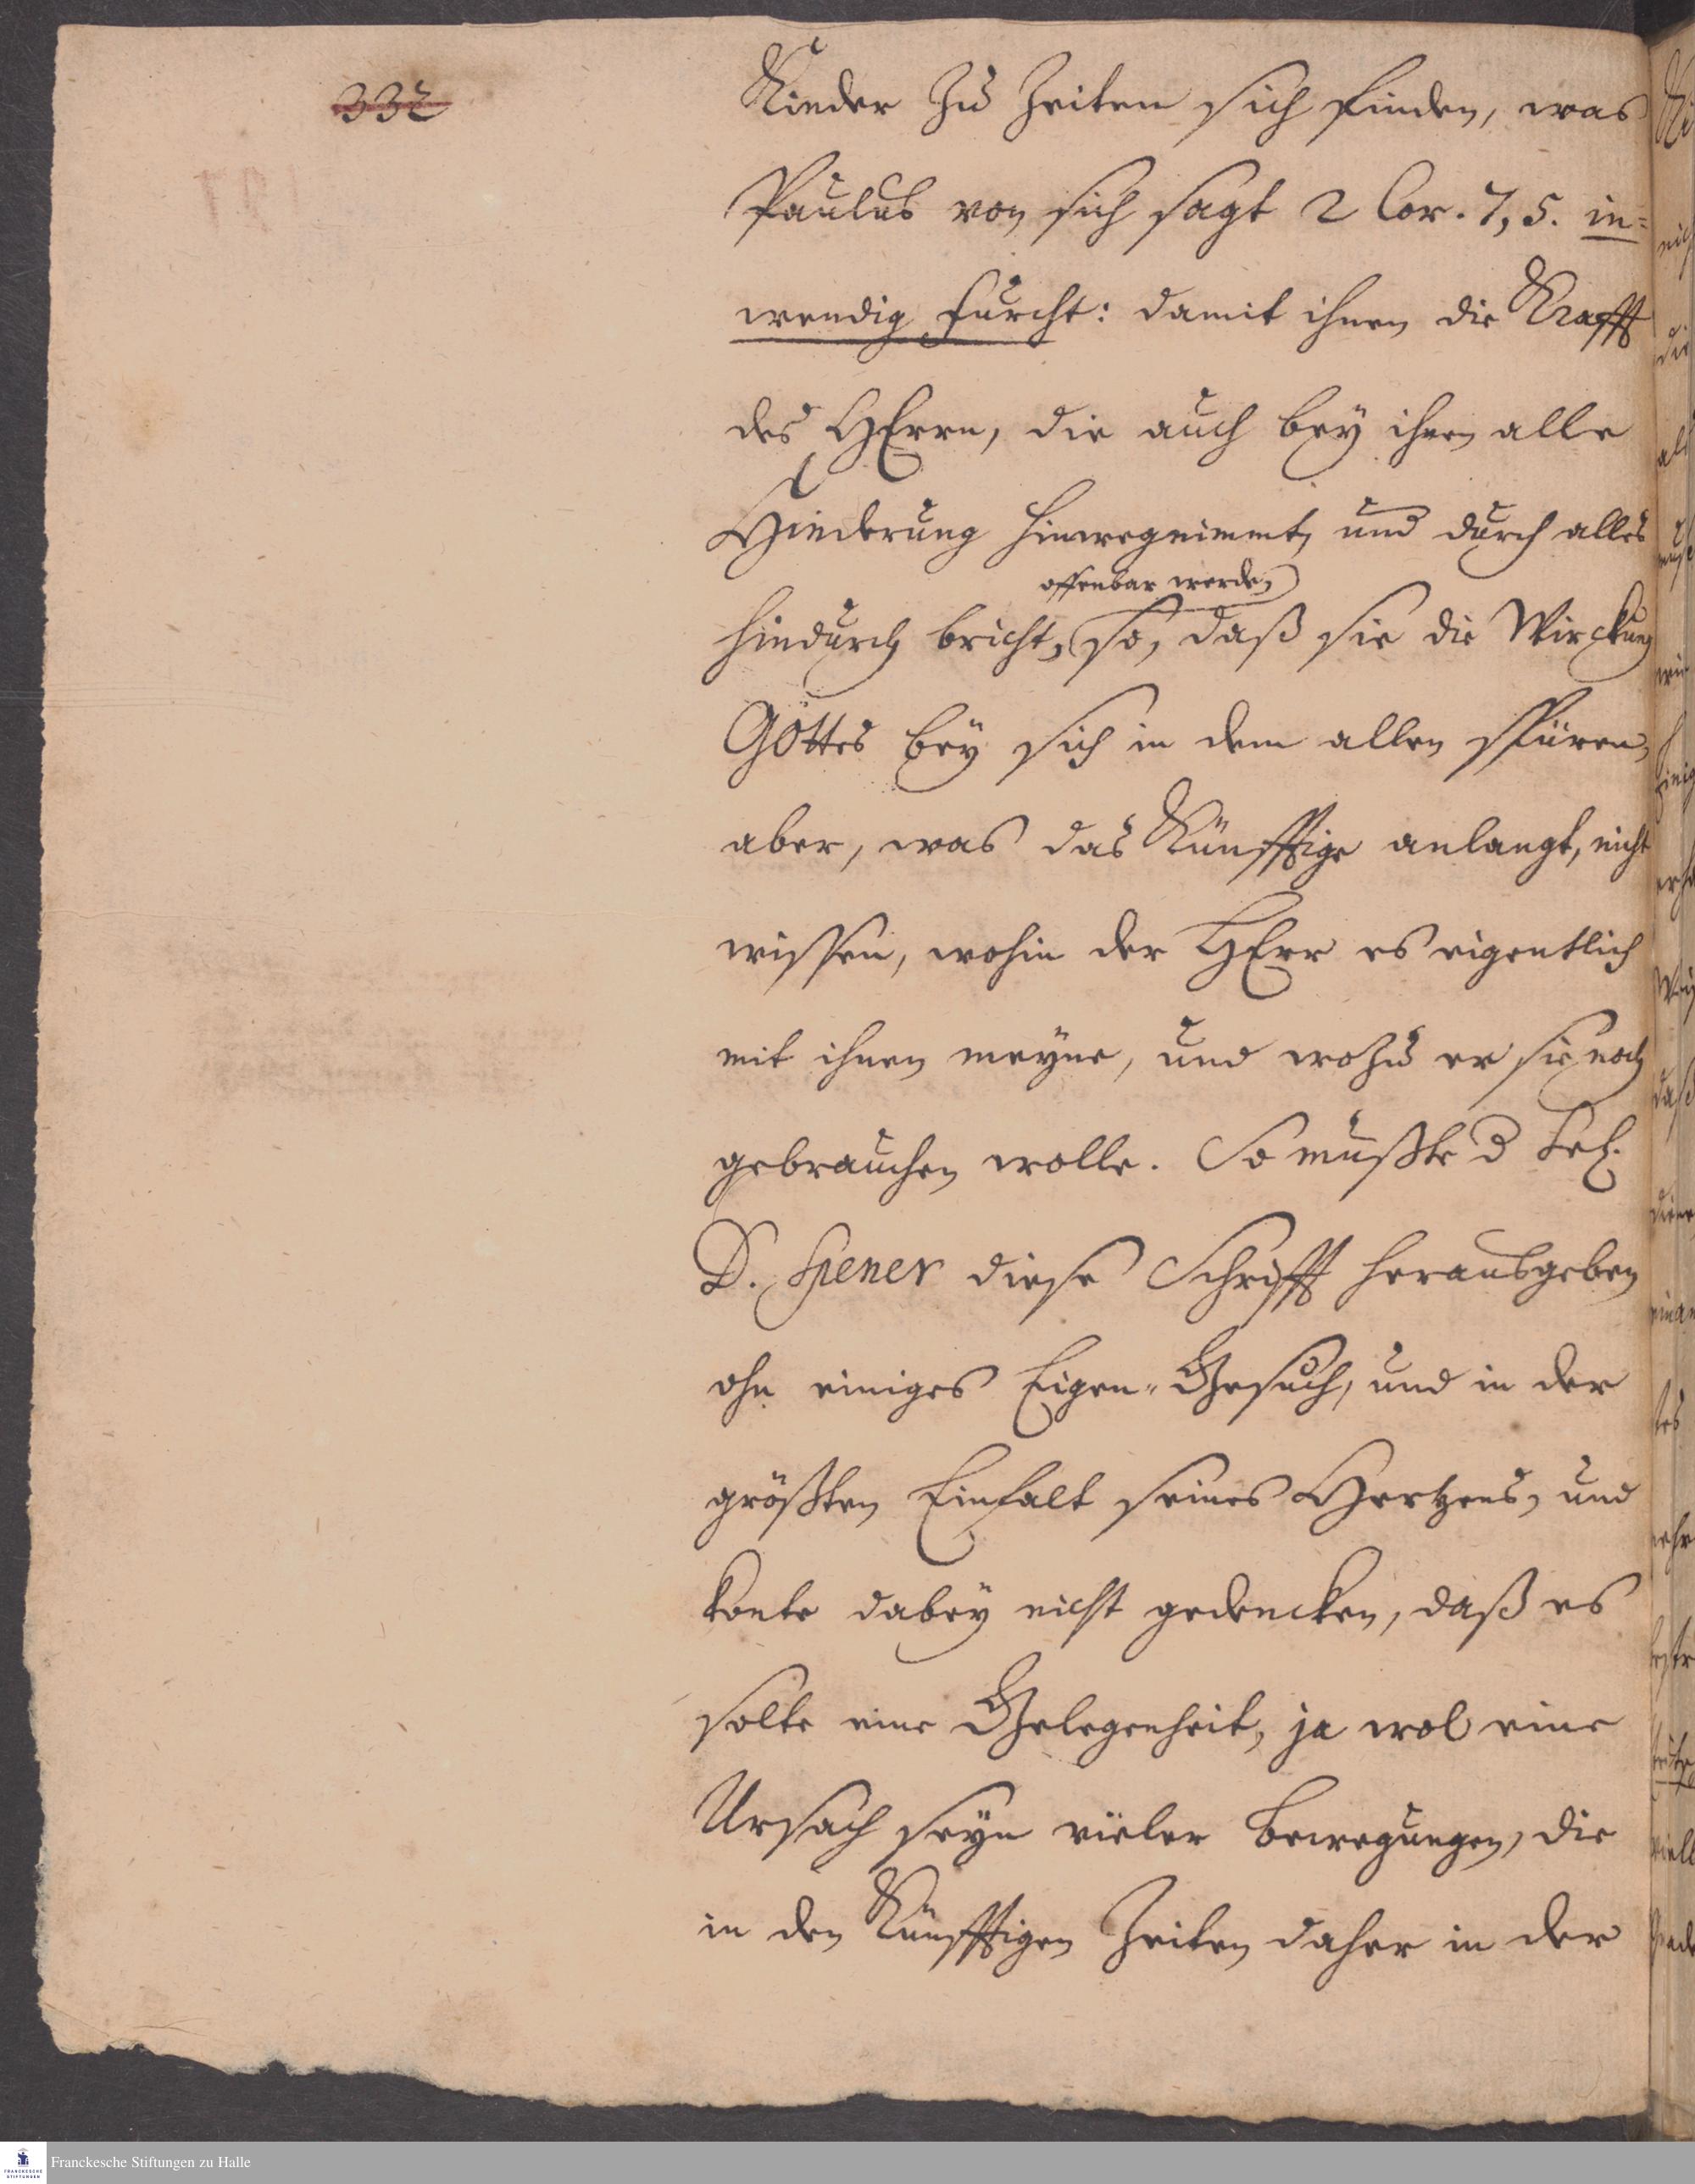 332
Kinder zu Zeiten sich finden, was
Paulus von sich sagt 2 Cor. 7, 5. in=
wendig furcht: damit ihnen die Krafft
des HErrn, die auch bey ihnen alle
Hinderung hinwegnimmt, und durch alles
offenbar werde,
hindurch bricht, so, daß sie die Wirckung
GOttes bey sich in dem allen spüren,
aber, was das Künfftige anlangt, nicht
wissen, wohin der HErr es eigentlich
mit ihnen meyne, und wozu er sie noch
gebrauchen wolle. So mußte d Sel.
D. Spener diese Schrifft herausgeben
ohn einiges Eigen-Gesuch, und in der
größten Einfalt seines Hertzens, und
konte dabey nicht gedencken, daß es
solte eine Gelegenheit, ja wol eine
Ursach seyn vieler Bewegungen, die
in den Künfftigen Zeiten daher in der
Franckesche Stiftungen zu Halle